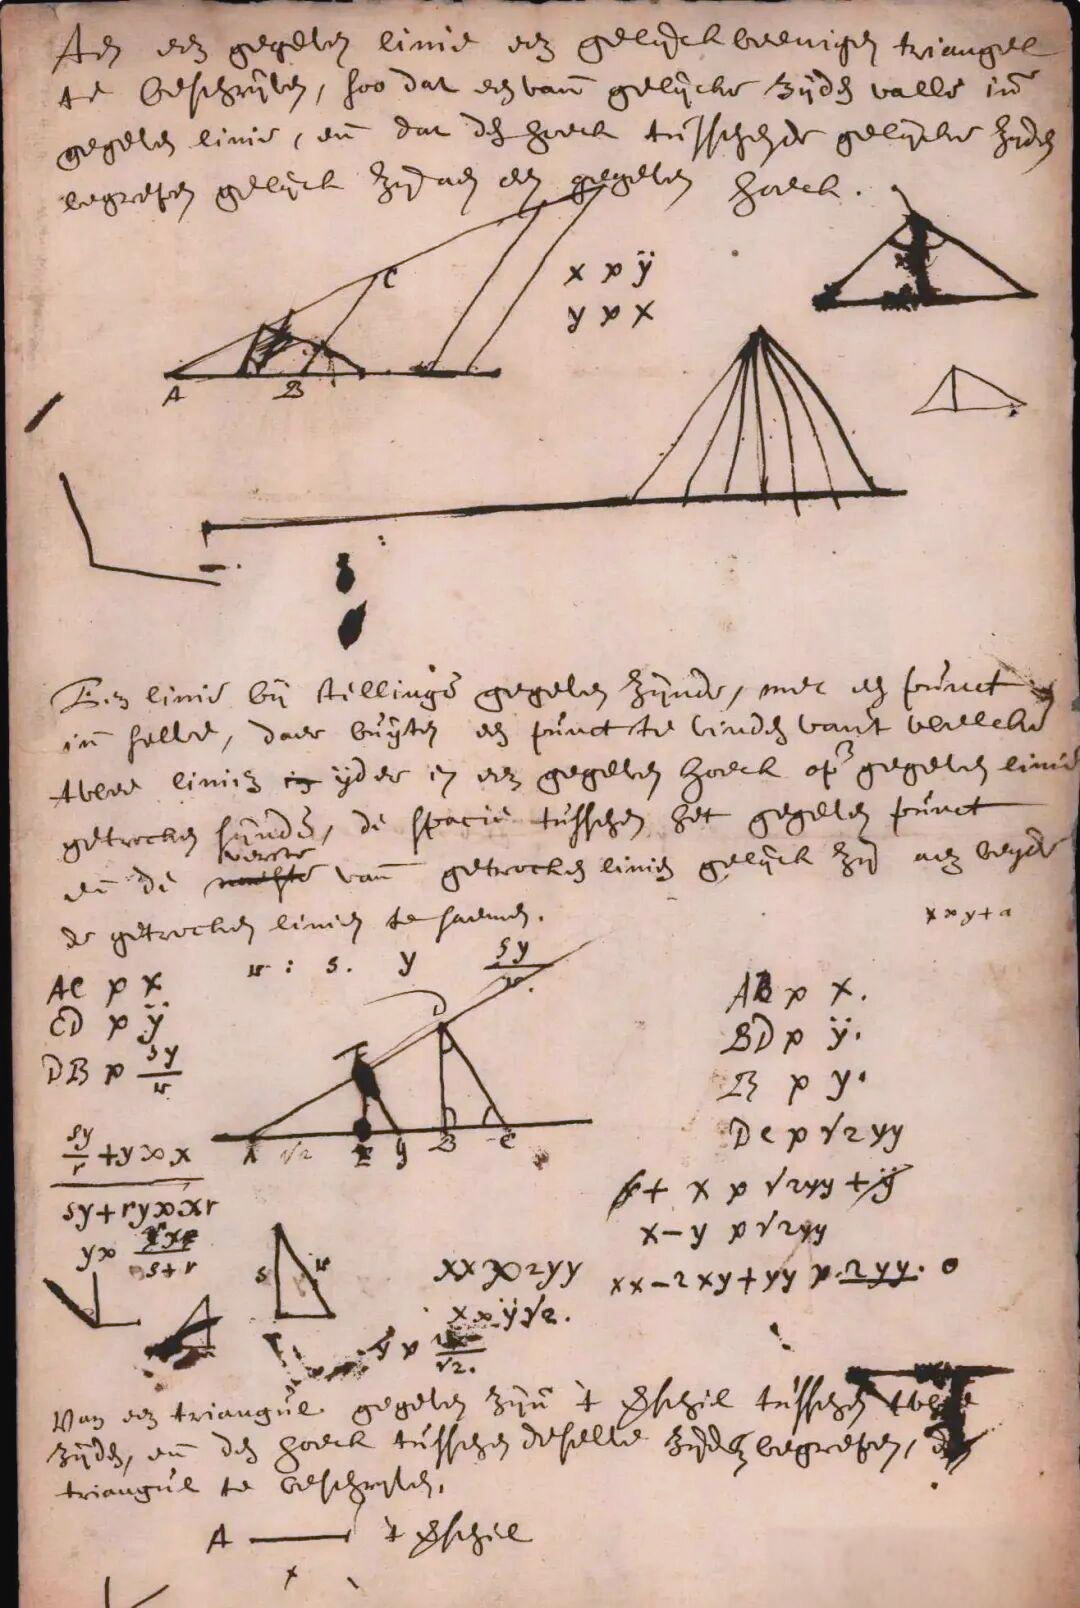 Aen een gegeven linie een gelijckbeenigen triangel
te beschrijven, soo dat een vande gelijcke zijden valle in
gegeven linie, en dat den hoeck tusschen de gelijcke zijden
begrepen gelijck zij aen een gegeven hoeck.
C
x ∞ ÿ
y ∞ x
A B
Een linie bij stellinge gegeven zijnde, met een punct
in selve, daer buyten een punct te vinden van't welcke
twee linien yder in een gegeven hoeck op gegeven linie
getrocken sijnde, de spacie tusschen het gegeven punct
verste
en de van getrocken linien gelijck zij aen beyde
de getrocken linien te saemen.
x ∞ y + a
r : s . y sy/r
AC ∞ x
CD ∞ ÿ
DB ∞ sy/r
D
A √2 E y B C
AB ∞ x.
BD ∞ ÿ.
B ∞ y.
DC ∞ √2yy
sy/r + y ∞ x
sy + ry ∞ xr
y ∞ /s+r
+ x ∞ √2yy + ÿ
x - y ∞ √2yy
s r
xx ∞ 2yy
xx - 2xy + yy ∞ 2yy . 0
x ∞ ÿ√2.
y ∞ /√2.
Van een triangul gegeven zijn 't verschil tusschen twee
zijden, en den hoeck tusschen deselve zijden begrepen, den
triangul te beschrijven.
A 't verschil
x